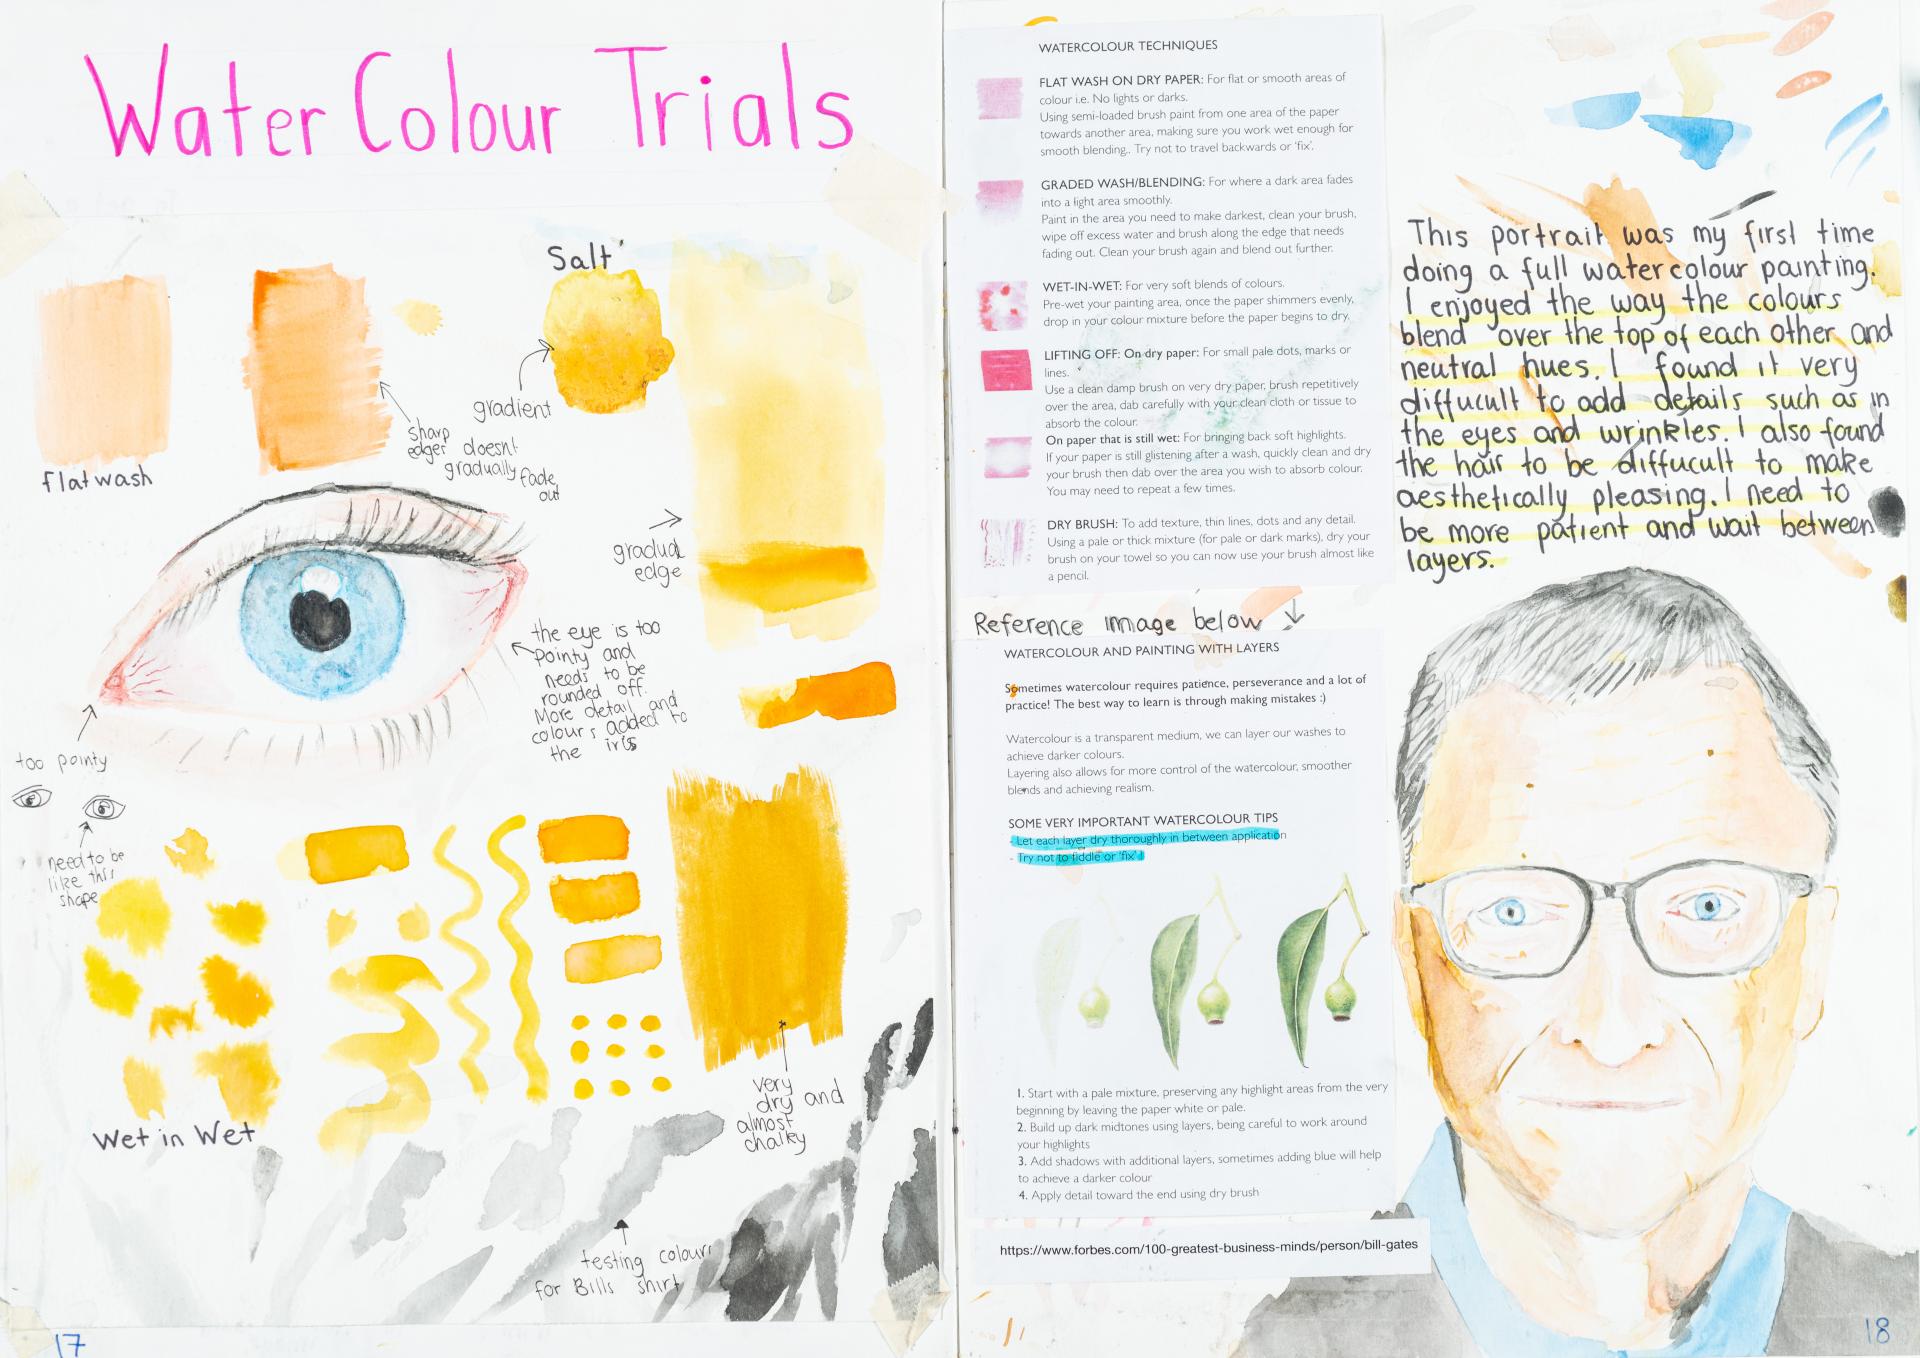 Water Colour Trials
Salt
gradient
flat wash
sharp
edges doesn't
gradually fade
out
gradual
edge
the eye is too
pointy and
needs to be
rounded off.
More detail and
colours added to
the iris
too pointy
need to be
like this
shape
Wet in Wet
very
dry and
almost
chalky
testing colours
for Bills shirt
17
WATERCOLOUR TECHNIQUES
FLAT WASH ON DRY PAPER: For flat or smooth areas of
colour i.e. No lights or darks.
Using semi-loaded brush paint from one area of the paper
towards another area, making sure you work wet enough for
smooth blending.. Try not to travel backwards or 'fix'.
GRADED WASH/BLENDING: For where a dark area fades
into a light area smoothly.
Paint in the area you need to make darkest, clean your brush,
wipe off excess water and brush along the edge that needs
fading out. Clean your brush again and blend out further.
WET-IN-WET: For very soft blends of colours.
Pre-wet your painting area, once the paper shimmers evenly,
drop in your colour mixture before the paper begins to dry.
LIFTING OFF: On dry paper: For small pale dots, marks or
lines.
Use a clean damp brush on very dry paper, brush repetitively
over the area, dab carefully with your clean cloth or tissue to
absorb the colour.
On paper that is still wet: For bringing back soft highlights.
If your paper is still glistening after a wash, quickly clean and dry
your brush then dab over the area you wish to absorb colour.
You may need to repeat a few times.
DRY BRUSH: To add texture, thin lines, dots and any detail.
Using a pale or thick mixture (for pale or dark marks), dry your
brush on your towel so you can now use your brush almost like
a pencil.
Reference image below
WATERCOLOUR AND PAINTING WITH LAYERS
Sometimes watercolour requires patience, perseverance and a lot of
practice! The best way to learn is through making mistakes :)
Watercolour is a transparent medium, we can layer our washes to
achieve darker colours.
Layering also allows for more control of the watercolour, smoother
blends and achieving realism.
SOME VERY IMPORTANT WATERCOLOUR TIPS
- Let each layer dry thoroughly in between application
- Try not to fiddle or 'fix' !
1. Start with a pale mixture, preserving any highlight areas from the very
beginning by leaving the paper white or pale.
2. Build up dark midtones using layers, being careful to work around
your highlights
3. Add shadows with additional layers, sometimes adding blue will help
to achieve a darker colour
4. Apply detail toward the end using dry brush
https://www.forbes.com/100-greatest-business-minds/person/bill-gates
This portrait was my first time
doing a full watercolour painting.
I enjoyed the way the colours
blend over the top of each other and
neutral hues. I found it very
diffucult to add details such as in
the eyes and wrinkles. I also found
the hair to be diffucult to make
aesthetically pleasing. I need to
be more patient and wait between
layers.
18